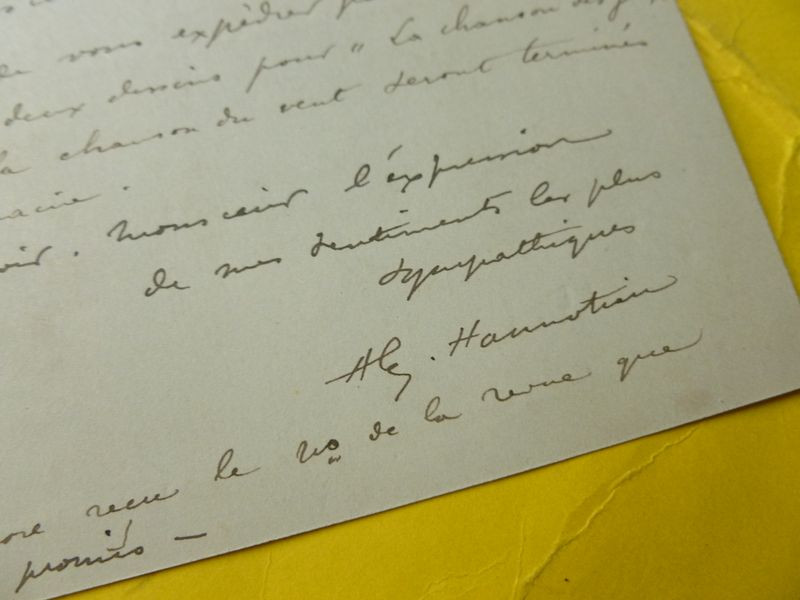 de vous expédier
deux dessins pour "La chanson des
la chanson du vent seront terminés
Monsieur l'expression
de mes sentiments les plus
sympathiques
Alex. Hannotiau
reçu le no de la revue que
promis —